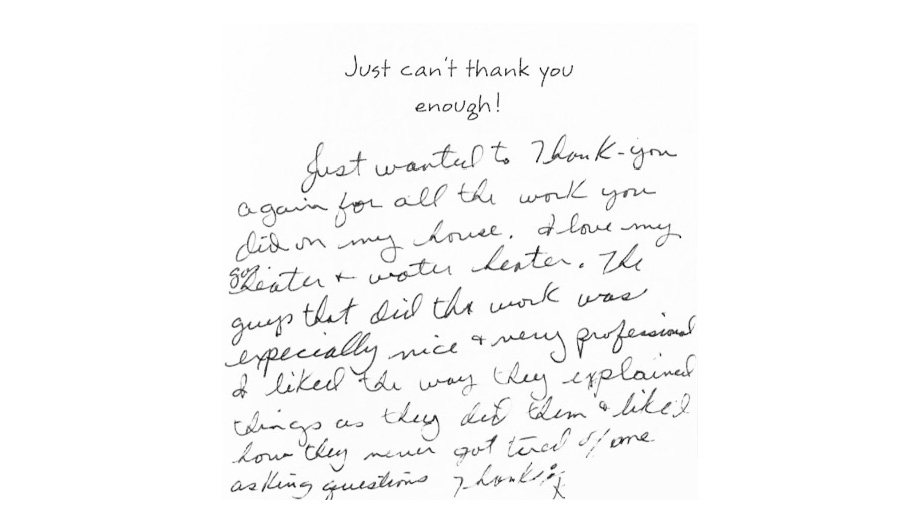 Just can't thank you
enough!
Just wanted to Thank-you
again for all the work you
did on my house. I love my
gas heater + water heater. The
guys that did the work was
expecially nice & very professional
I liked the way they explained
things as they did them & liked
how they never got tired of me
asking questions Thanks!